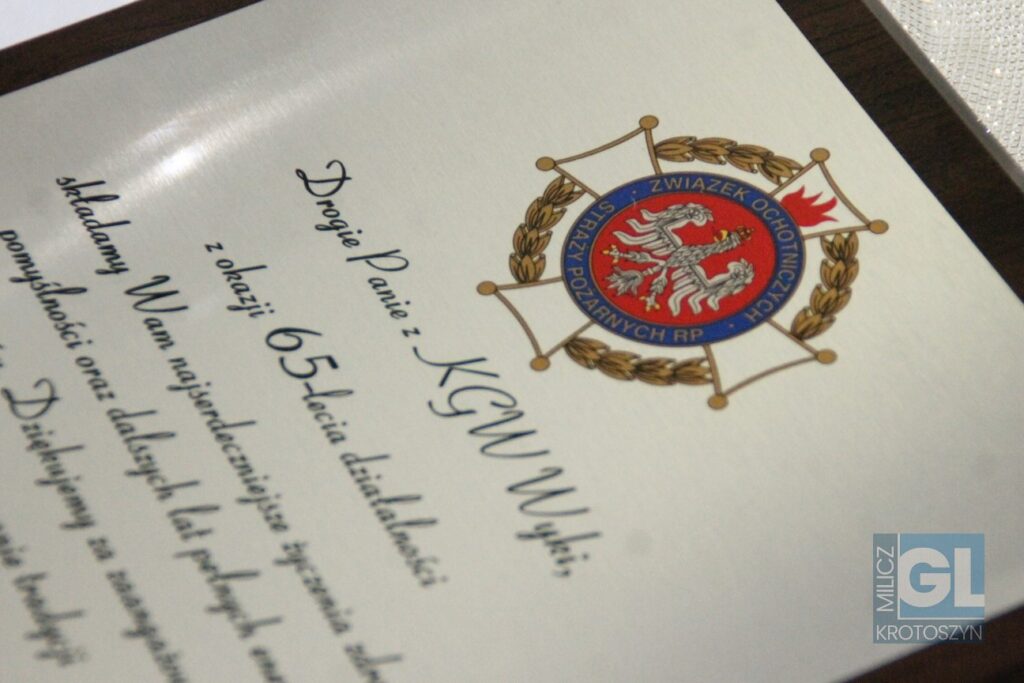 ZWIĄZEK OCHOTNICZYCH
STRAŻY POŻARNYCH RP
Drogie Panie z KGW Wyki,
z okazji 65-lecia działalności
składamy Wam najserdeczniejsze życzenia
pomyślności oraz dalszych lat pełnych
Dziękujemy za
tradycji
MILICZ
GL
KROTOSZYN